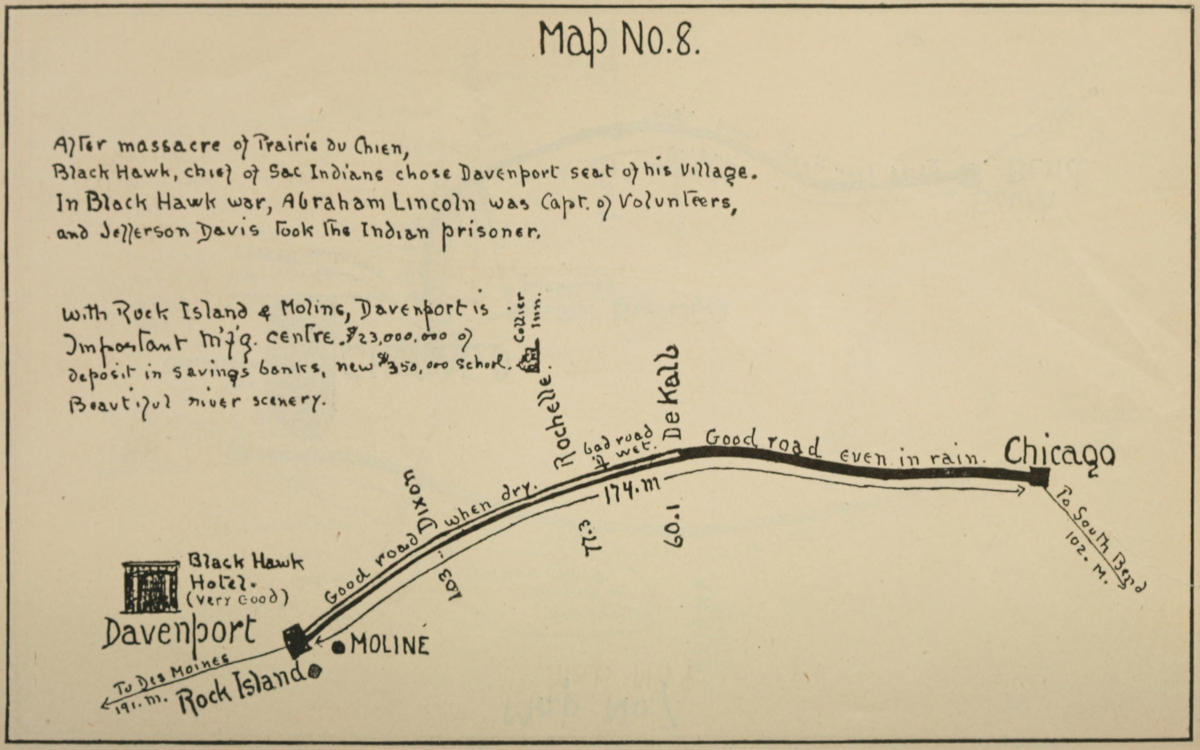 Map No.8.
After massacre of Prairie du Chien,
Black Hawk, chief of Sac Indians chose Davenport seat of his village.
In Black Hawk war, Abraham Lincoln was Capt. of Volunteers,
and Jefferson Davis took the Indian prisoner.
with Rock Island & Moline, Davenport is
Important m'f'g. centre. $23,000,000 of
deposit in savings banks, new $350,000 school.
Beautiful river scenery.
Collier
Inn.
Rochelle.
bad road
if wet.
De Kalb
Good road even in rain.
Chicago
To South Bend
102. M.
Dixon
Good road when dry.
174.m
77.3
60.1
103
Black Hawk
Hotel.
(very good)
Davenport
MOLINE
Rock Island
To Des Moines
191. m.